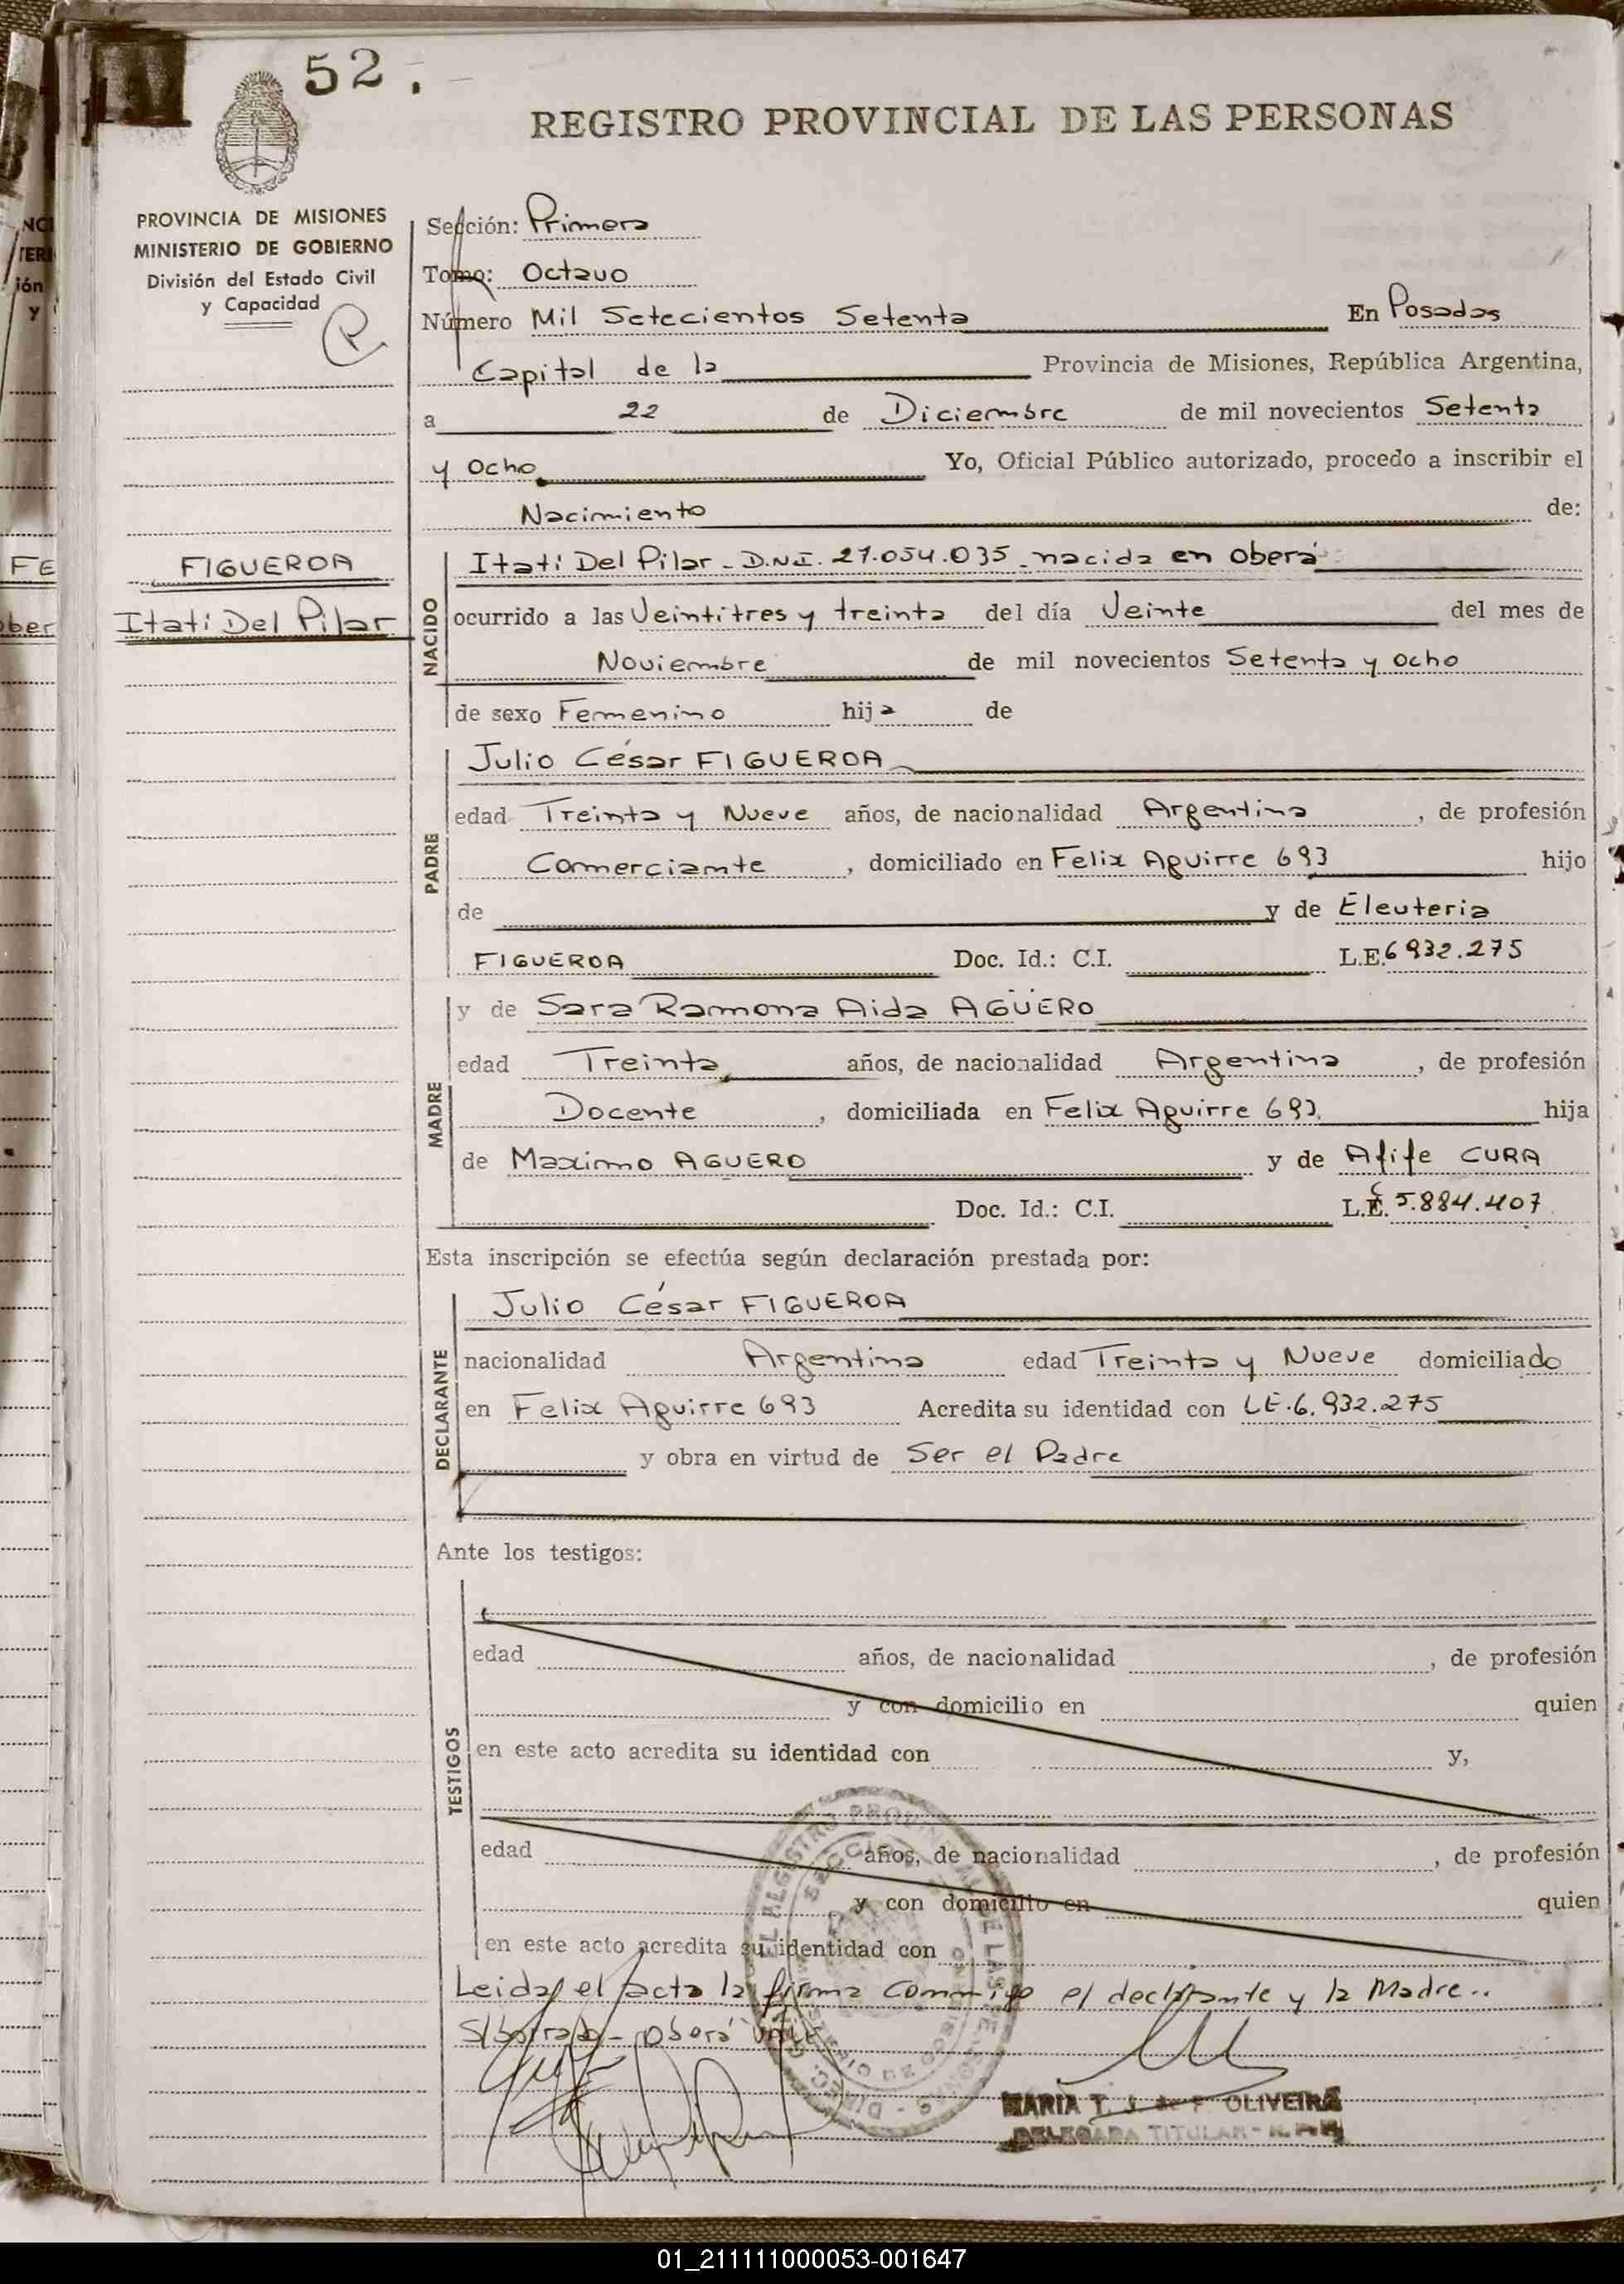 52.
REGISTRO PROVINCIAL DE LAS PERSONAS
PROVINCIA DE MISIONES
MINISTERIO DE GOBIERNO
División del Estado Civil
y Capacidad
Sección: Primera
Tomo: Octavo
Número Mil Setecientos Setenta En Posadas
Capital de la Provincia de Misiones, República Argentina,
a 22 de Diciembre de mil novecientos Setenta
y Ocho Yo, Oficial Público autorizado, procedo a inscribir el
Nacimiento de:
FIGUEROA
Itatí Del Pilar
NACIDO
Itatí Del Pilar - D.N.I. 27.054.035 - nacida en Oberá
ocurrido a las Veintitres y treinta del día Veinte del mes de
Noviembre de mil novecientos Setenta y Ocho
de sexo Femenino hija de
PADRE
Julio César FIGUEROA
edad Treinta y Nueve años, de nacionalidad Argentina, de profesión
Comerciante, domiciliado en Felix Aguirre 693 hijo
de y de Eleuteria
FIGUEROA Doc. Id.: C.I. L.E. 6932.275
MADRE
y de Sara Ramona Aida AGÜERO
edad Treinta años, de nacionalidad Argentina, de profesión
Docente, domiciliada en Felix Aguirre 693 hija
de Maximo AGUERO y de Afife CURA
Doc. Id.: C.I. 5.884.407
Esta inscripción se efectúa según declaración prestada por:
DECLARANTE
Julio César FIGUEROA
nacionalidad Argentina edad Treinta y Nueve domiciliado
en Felix Aguirre 693 Acredita su identidad con LE.6.932.275
y obra en virtud de Ser el Padre
Ante los testigos:
TESTIGOS
edad años, de nacionalidad, de profesión
y con domicilio en quien
en este acto acredita su identidad con y,
edad años, de nacionalidad, de profesión
y con domicilio en quien
en este acto acredita su identidad con
Leida el acta la firma conmigo el declarante y la Madre..
S/borrado - Oberá Vale
MARIA T. J. de F. OLIVEIRA
DELEGADA TITULAR
01_211111000053-001647